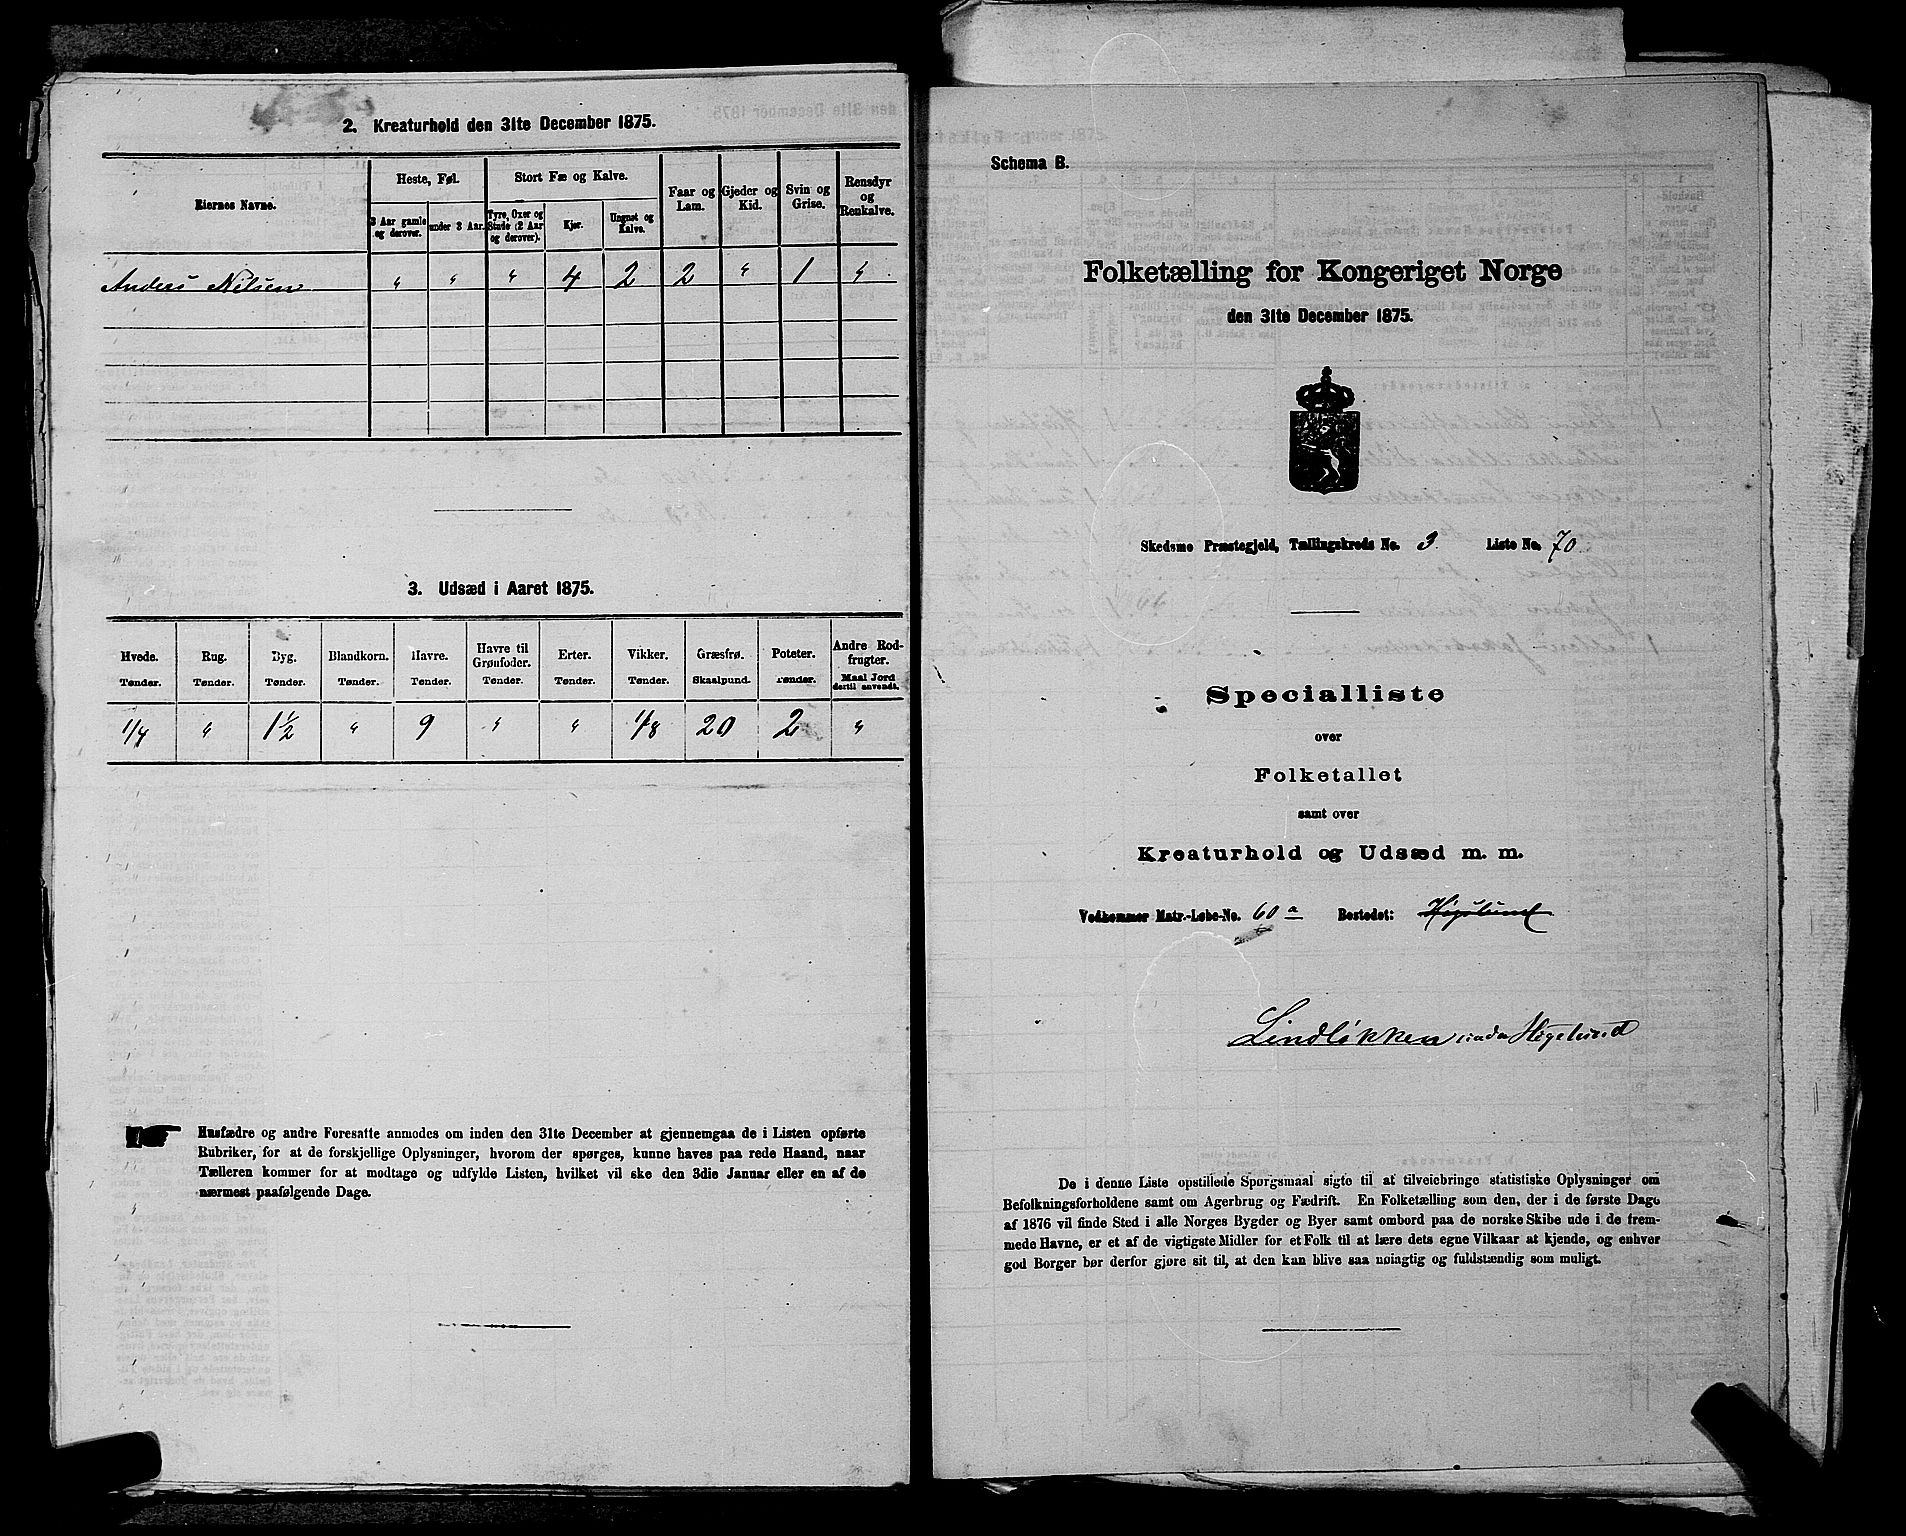 2. Kreaturhold den 31te December 1875.
Eiernes Navne.
Heste, Føl.
3 Aar gamle og derover.
under 3 Aar.
Stort Fæ og Kalve.
Tyre, Oxer og Stude (2 Aar og derover).
Kjør.
Ungnøt og Kalve.
Faar og Lam.
Gjeder og Kid.
Svin og Grise.
Rensdyr og Renkalve.
Anders Nilsen " " " 4 2 2 " 1 "
3. Udsæd i Aaret 1875.
Hvede. Rug. Byg. Blandkorn. Havre. Havre til Grønfoder. Erter. Vikker. Græsfrø. Poteter. Andre Rodfrugter.
Tønder. Tønder. Tønder. Tønder. Tønder. Tønder. Tønder. Tønder. Skaalpund. Tønder. Maal Jord dertil anvendt.
1/4 " 1 1/2 " 9 " " 1/8 20 2 "
Husfædre og andre Foresatte anmodes om inden den 31te December at gjennemgaa de i Listen opførte
Rubriker, for at de forskjellige Oplysninger, hvorom der spørges, kunne haves paa rede Haand, naar
Tælleren kommer for at modtage og udfylde Listen, hvilket vil ske den 3die Januar eller en af de
nærmest paafølgende Dage.
Schema B.
Folketælling for Kongeriget Norge
den 31te December 1875.
Skedsmo Præstegjeld, Tællingskreds No. 3 Liste No. 70
Specialliste
over
Folketallet
samt over
Kreaturhold og Udsæd m. m.
Vedkommer Matr.-Løbe-No. 60a Bostedet: Høgslund
Lindløkken under Høgslund
De i denne Liste opstillede Spørgsmaal sigte til at tilveiebringe statistiske Oplysninger om
Befolkningsforholdene samt om Agerbrug og Fædrift. En Folketælling som den, der i de første Dage
af 1876 vil finde Sted i alle Norges Bygder og Byer samt ombord paa de norske Skibe ude i de frem-
mede Havne, er et af de vigtigste Midler for et Folk til at lære dets egne Vilkaar at kjende, og enhver
god Borger bør derfor gjøre sit til, at den kan blive saa nøiagtig og fuldstændig som muligt.